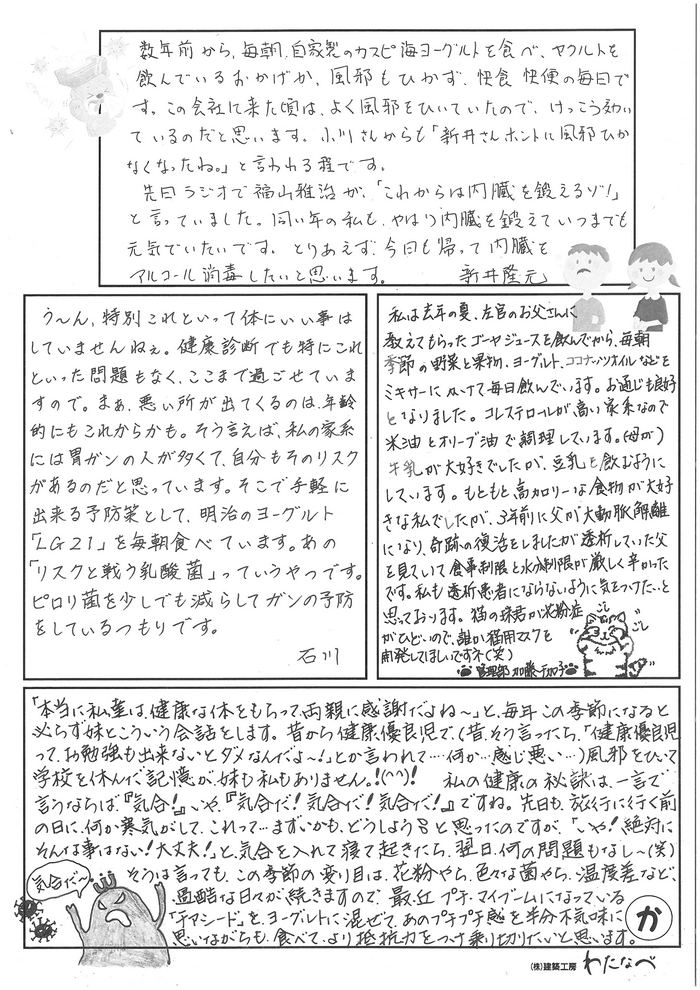 数年前から、毎朝、自家製のカスピ海ヨーグルトを食べ、ヤクルトを
飲んでいるおかげか、風邪もひかず、快食快便の毎日で
す。この会社に来た頃は、よく風邪をひいていたので、けっこう効い
ているのだと思います。小川さんからも「新井さんホントに風邪ひか
なくなったね。」と言われる程です。
先日ラジオで福山雅治が、「これからは内臓を鍛えるゾ!」
と言っていました。同い年の私も、やはり内臓を鍛えていつまでも
元気でいたいです。とりあえず、今日も帰って内臓を
アルコール消毒したいと思います。 新井隆元
う〜ん、特別これといって体にいい事は
していませんねぇ。健康診断でも特にこれ
といった問題もなく、ここまで過ごせていま
すので。まぁ、悪い所が出てくるのは、年齢
的にもこれからかも。そう言えば、私の家系
には胃ガンの人が多くて、自分もそのリスク
があるのだと思っています。そこで手軽に
出来る予防策として、明治のヨーグルト
「LG21」を毎朝食べています。あの
「リスクと戦う乳酸菌」っていうやつです。
ピロリ菌を少しでも減らしてガンの予防
をしているつもりです。
石川
私は去年の夏、左官のお父さんに
教えてもらったゴーヤジュースを飲んでから、毎朝
季節の野菜と果物、ヨーグルト、ココナッツオイルなどを
ミキサーにかけて毎日飲んでいます。お通じも良好
となりました。コレステロールが高い家系なので
米油とオリーブ油で調理しています。(母が)
牛乳が大好きでしたが、豆乳を飲むように
しています。もともと高カロリーな食物が大好
きな私でしたが、3年前に父が大動脈解離
になり、奇跡の復活をしましたが透析していた父
を見ていて食事制限と水分制限が厳しく辛かった
です。私も透析患者にならないように気をつけたいと
思っております。猫の珠君が花粉症
がひどいので、誰か猫用マスクを
開発してほしいですネ(笑)
管理部 加藤千加子
ゴシ
ゴシ
「本当に、私達は、健康な体をもらって、両親に感謝だよね〜」と、毎年この季節になると
必らず妹とこういう会話をします。昔から健康優良児で、(昔、そう言ったら、「健康優良児
って、お勉強も出来ないとダメなんだよ〜!」とか言われて・・・何か・・感じ悪い・・・)風邪をひいて
学校を休んだ記憶が、妹も私もありません。!(^^)! 私の健康の秘訣は、一言で
言うならば『気合!』いや、『気合だ!気合だ!気合だ!』ですね。先日も、旅行に行く前
の日に、何か寒気がして、これって・・・まずいかも、どうしよう と思ったのですが、「いや!絶対に
そんな事はない!大丈夫!」と、気合を入れて寝て起きたら、翌日、何の問題もなし〜(笑)
そうは言っても、この季節の変り目は、花粉やら、色々な菌やら、温度差など、
過酷な日々が続きますので、最近プチ・マイブームになっている
「チヤシード」を、ヨーグルトに混ぜて、あのプチプチ感を半分不気味に
思いながらも、食べて、より抵抗力をつけ乗り切りたいと思います。
気合だ〜
か
(株)建築工房 わたなべ